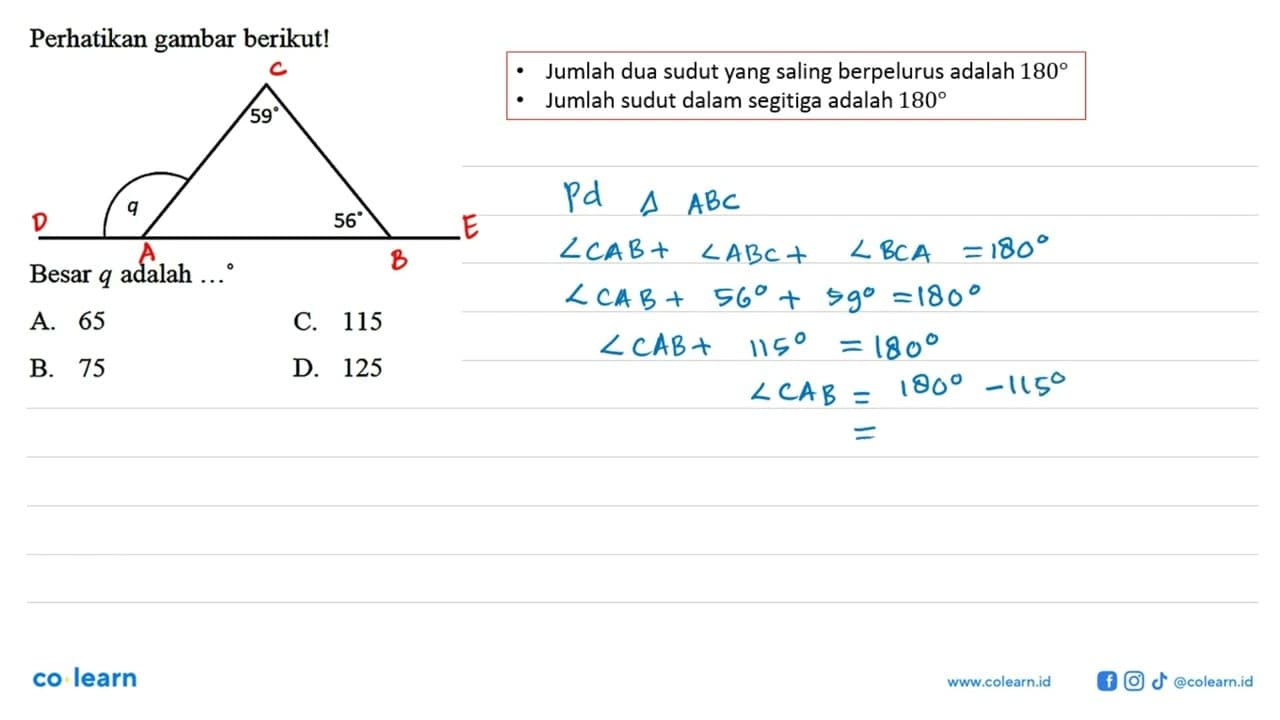 Perhatikan gambar berikut!
C
59°
q
56°
D
E
A
B
Besar q adalah ...°
A. 65
C. 115
B. 75
D. 125
• Jumlah dua sudut yang saling berpelurus adalah 180°
• Jumlah sudut dalam segitiga adalah 180°
Pd Δ ABC
∠CAB + ∠ABC + ∠BCA = 180°
∠CAB + 56° + 59° = 180°
∠CAB + 115° = 180°
∠CAB = 180° - 115°
=
co learn
www.colearn.id
@colearn.id